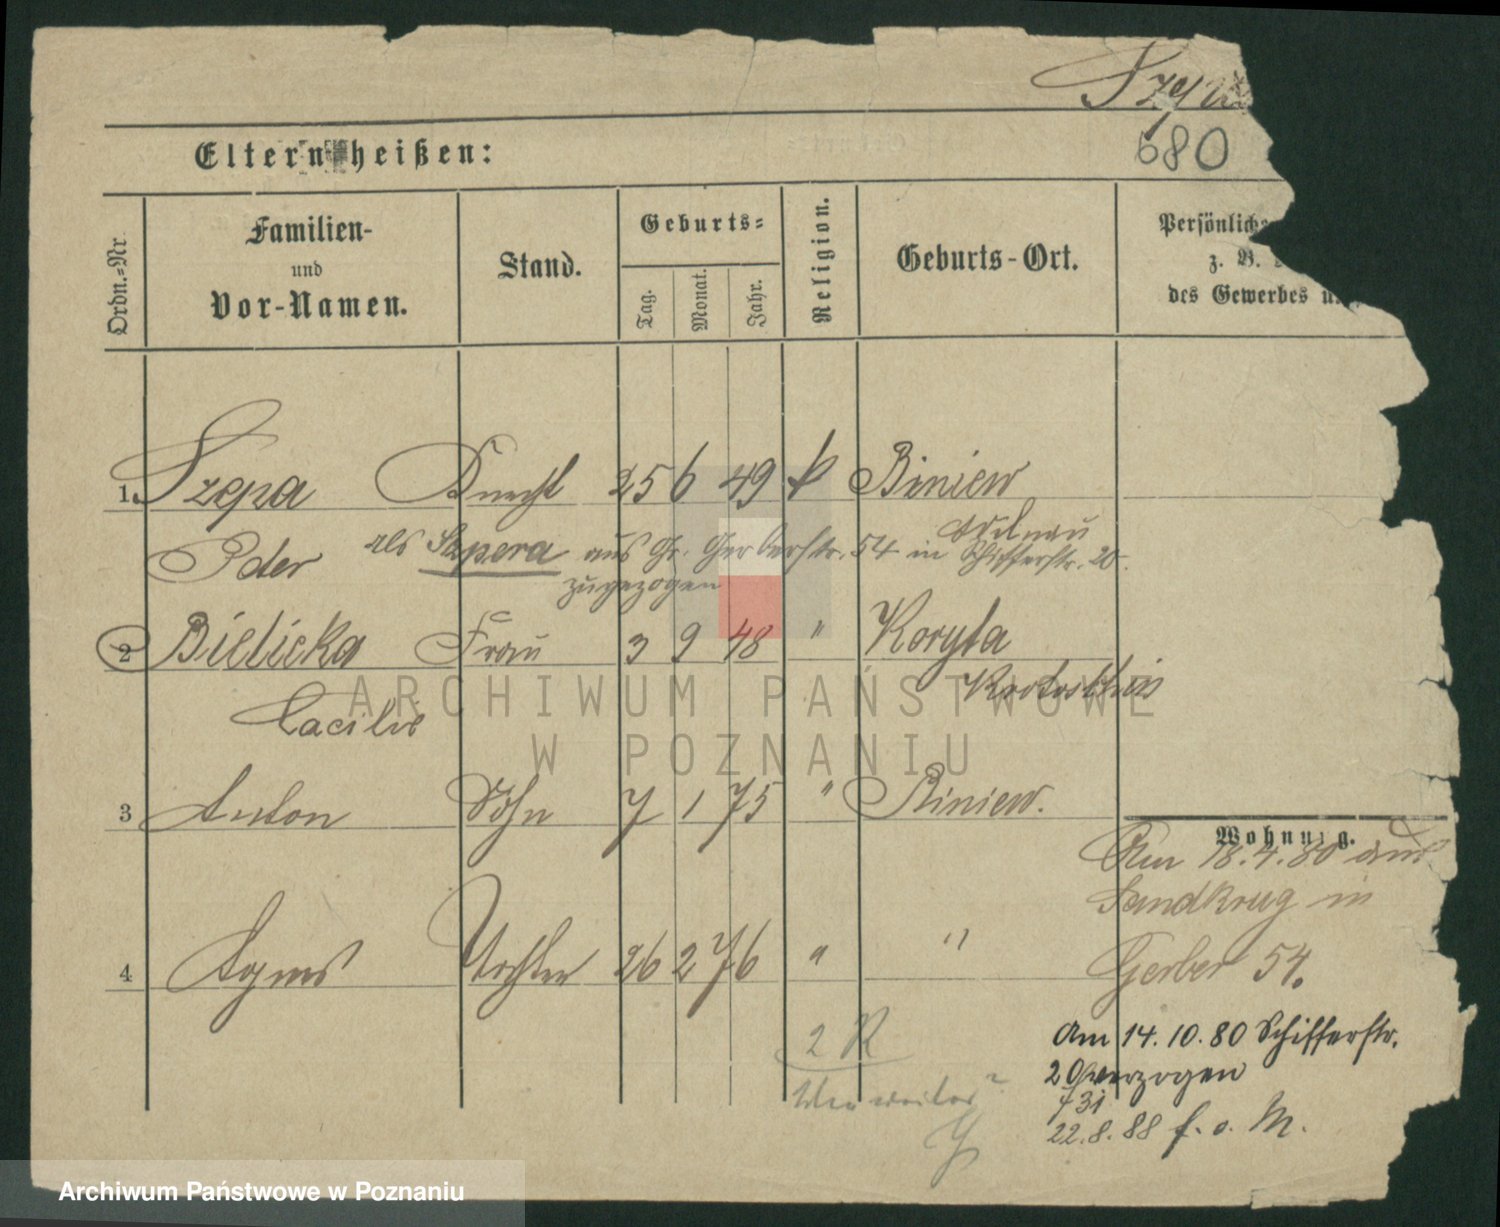 680
Eltern heißen:
Ordn.=Nr.
Familien-
und
Vor-Namen.
Stand.
Geburts=
Tag.
Monat.
Jahr.
Religion.
Geburts-Ort.
Persönliche
z. B.
des Gewerbes u
1. Szepa Knecht 25 6 49 k Biniew
Adelnau
Peter als Szpera aus Gr. Gerberstr. 54 in Schifferstr. 20.
zugezogen
2 Bielicka Frau 3 9 48 " Koryta
Krotoschin
Cacilie
3 Anton Sohn 7 1 75 " Biniew.
Wohnung.
Am 18.4.80 aus
Sandkrug in
4 Agnes Tochter 26 2 76 " "
Gerber 54.
2 K
Am 14.10.80 Schifferstr.
20 verzogen
wo weiter?
22.8.88 f. o. M.
ARCHIWUM PAŃSTWOWE
W POZNANIU
Archiwum Państwowe w Poznaniu